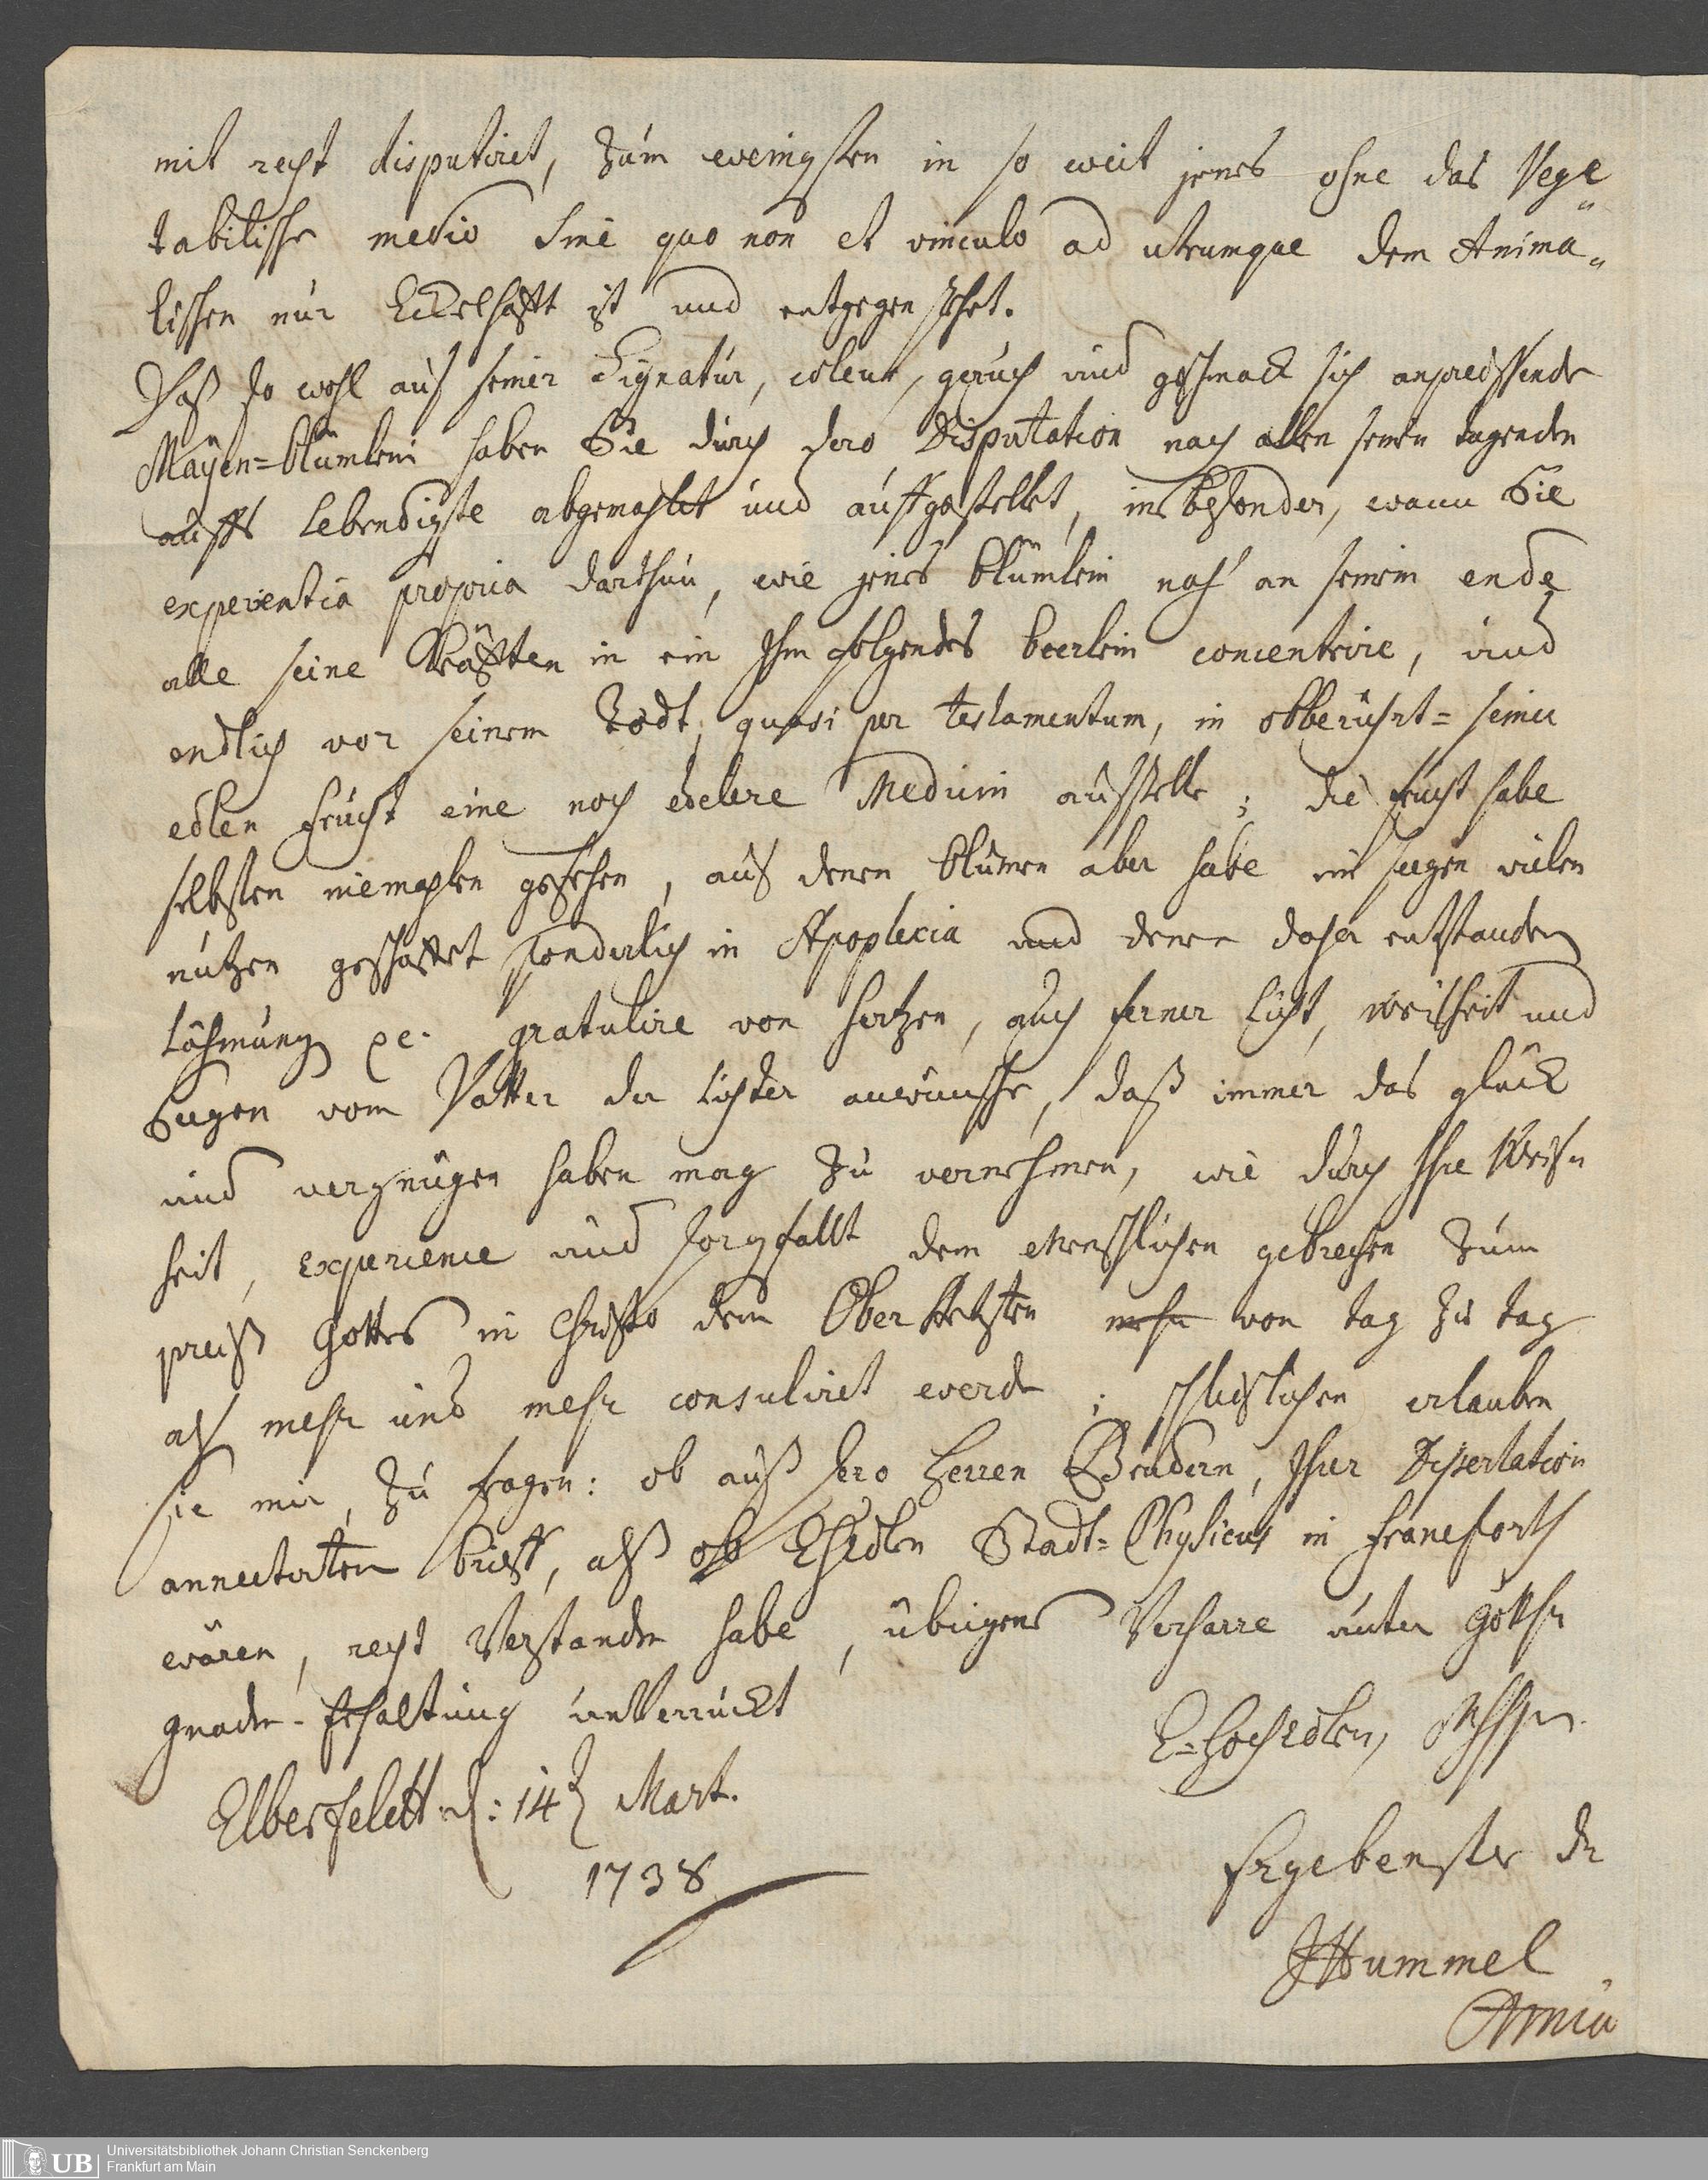 mit recht disputiret, zum wenigsten in so weit jenes ohne das Vege„
tabilische medio sine quo non et vinculo ad utrumque dem Anima„
lischen nur Eckelhafft ist und entgegen stehet.
Daß so wohl aus seiner Signatur, coleur, geruch und geschmack sich anpreissende
Mäyen=blümlein haben Sie durch dero Disputation nach allen seinen tugenden
auffs lebendigste abgemahlet und auffgestellet, ins besonder, wann Sie
experientia propria darthun, wie jenes blümlein noch an seinem ende
alle seine Kräfften in ein Ihm folgendes beerlein concentrire, und
endlich vor seinem Todt, quasi per testamentum, in obberührt= seiner
edlen frucht eine noch edelere Medicin ausstelle; die frucht habe
selbsten niemahlen gesehen, aus denen blumen aber habe im seegen vielen
nutzen geschaffet sonderlich in Apoplexia und denen daher entstanden
Lähmung pe. gratulire von hertzen, auch ferner licht, weisheit und
Seegen vom Vatter der lichter anwünsche, daß immer das glück
und vergnügen haben mag zu vernehmen, wie durch Ihre Weis„
heit, experience und sorgfallt dem menschlichen gebrechen zum
preiß Gottes in Christo dem Ober Artzten mehr von tag zu tag
als mehr und mehr consuliret werde; schließlichen erlauben
sie mir, zu fragen: ob auß dero Herren Brudern, Ihrer Dissertation
annectirten brieff, alß ob EhEdlen Stadt=Physicus in francforth
wären, recht Verstanden habe, übrigens Verharre unter Göttlr
gnaden-Erhaltung unVerruckt
E=HochEdlen,
Elberfeldt d: 14 Mart.
1738
Ergebenster Dr
JHummel
Universitätsbibliothek Johann Christian Senckenberg
Frankfurt am Main
UB